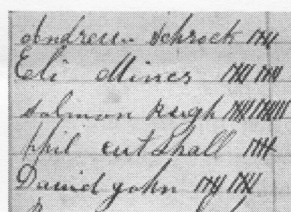 Andrew Schrock
Eli Miner
Solmon Rugh
Phil cutshall
David john